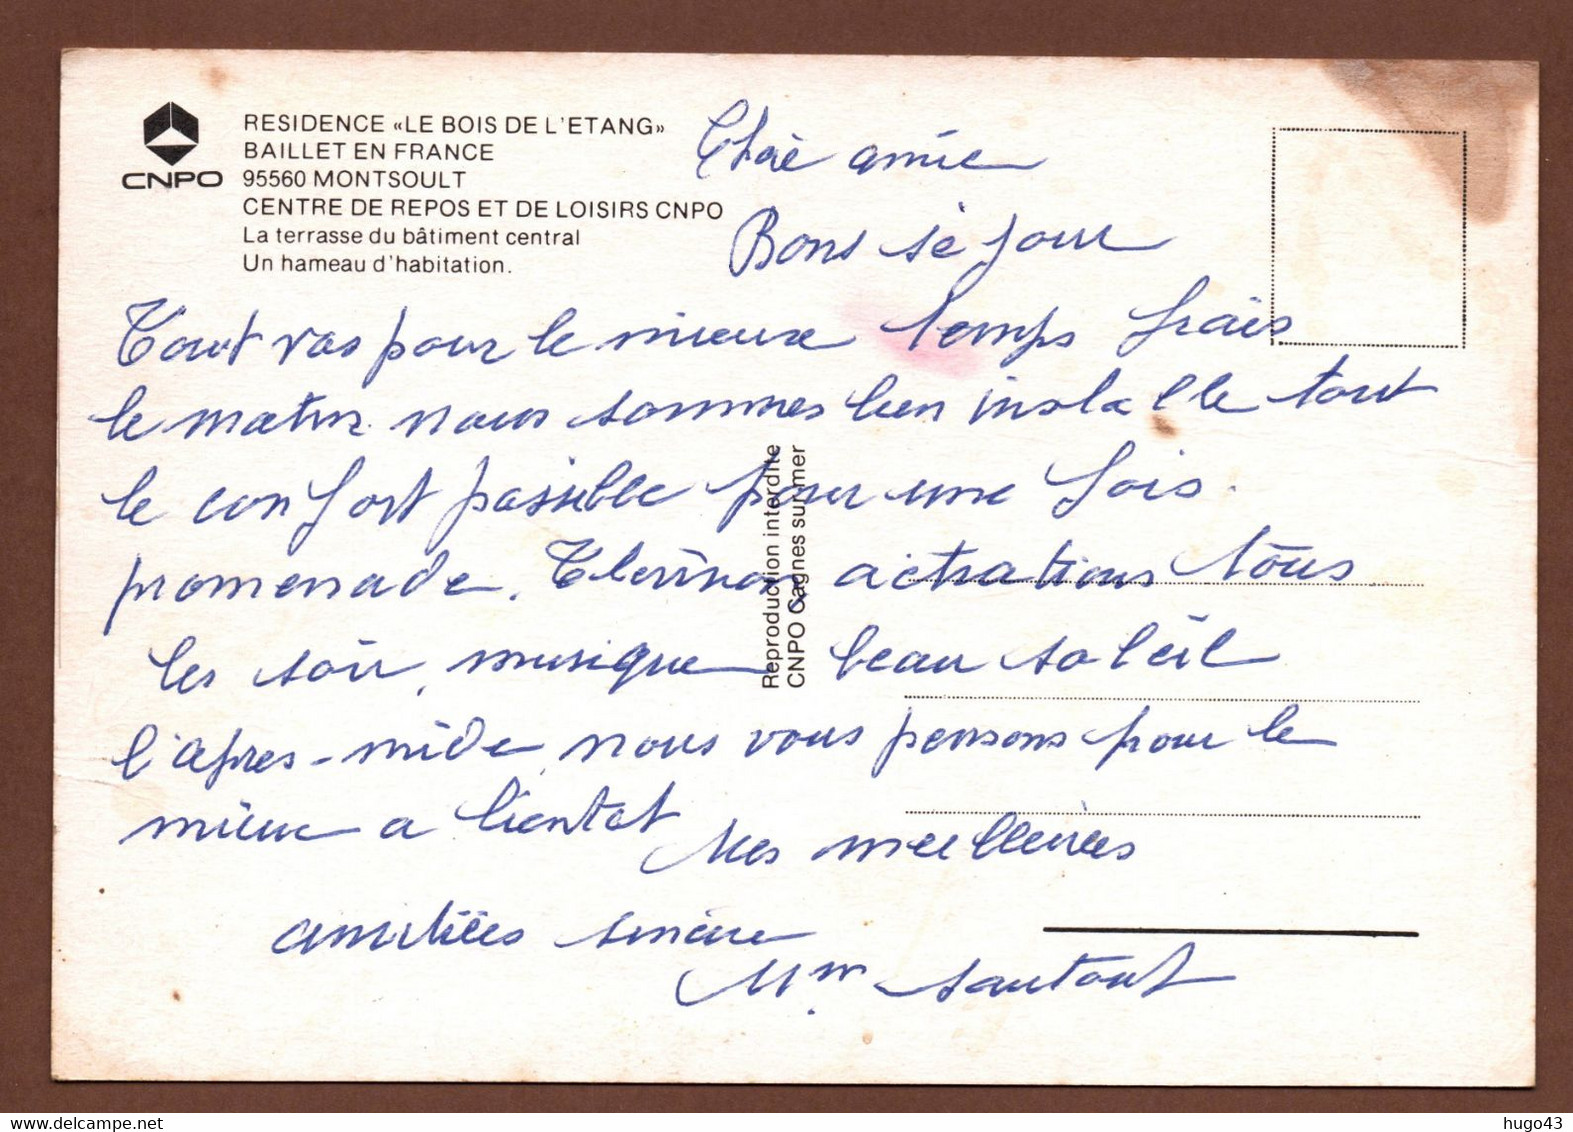 CNPO
RESIDENCE «LE BOIS DE L'ETANG»
BAILLET EN FRANCE
95560 MONTSOULT
CENTRE DE REPOS ET DE LOISIRS CNPO
La terrasse du bâtiment central
Un hameau d'habitation.
Reproduction interdite
CNPO Cagnes sur mer
amie
Bons séjour
Tout vas pour le mieux temps frais
le matin nous sommes bien installe tout
le confort possible pour une fois.
promenade. actrations tous
les soir, musique beau soleil
l'apres-mide nous vous pensons pour le
mieux a bientot
Mes meilleures
amitiées sincère
Mm Sautout
hugo43